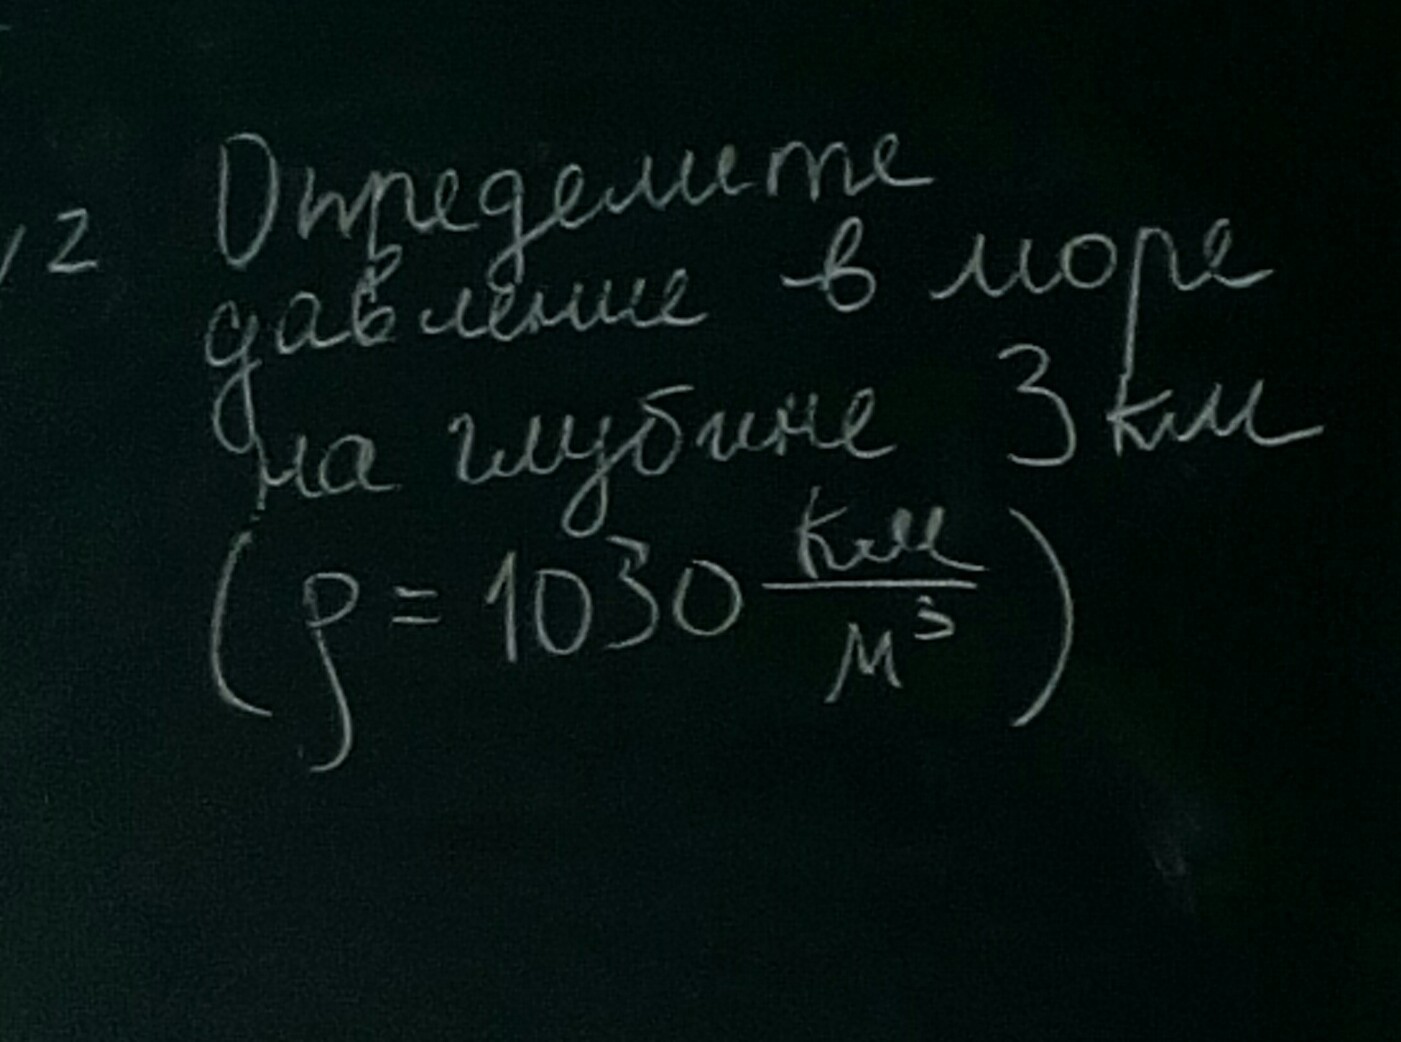 /2 Определите
давление в море
на глубине 3 км
(ρ = 1030 км/м³)